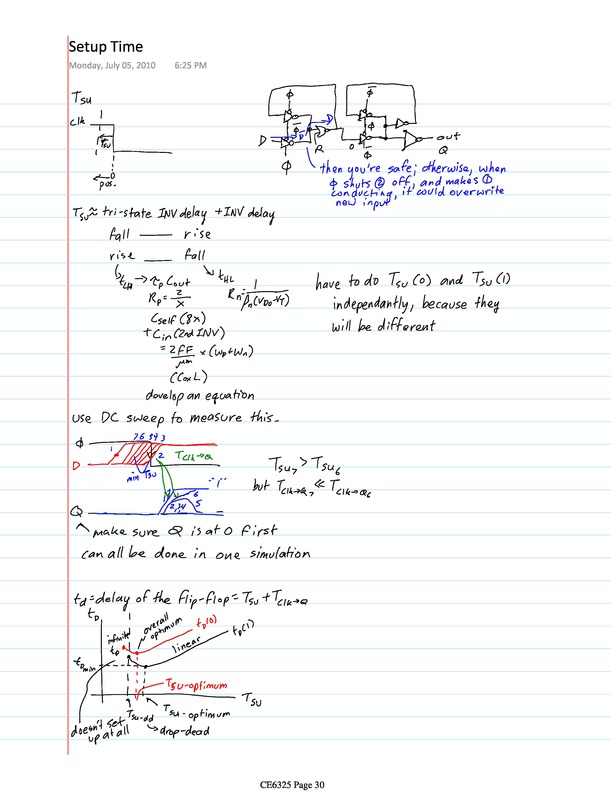 Setup Time
Monday, July 05, 2010 6:25 PM
Tsu
clk
Tsu
0
pos.
ϕ
ϕ̅
D
D
ϕ
R
ϕ̅
ϕ
out
Q
then you're safe; otherwise, when
ϕ shuts ② off, and makes ①
conducting, it could overwrite
new input
Tsu ≈ tri-state INV delay + INV delay
fall —— rise
rise —— fall
tLH → τp Cout
tHL
Rp = 2/X
Rn = 1/βn(VDD-VT)
Cself (8x)
+ Cin (2nd INV)
= 2fF/μm × (Wp+Wn)
(Cox L)
develop an equation
have to do Tsu(0) and Tsu(1)
independantly, because they
will be different
use DC sweep to measure this.
ϕ
7 6 5 4 3
1
2
TClk→Q
D
min Tsu
"1"
6
Q
2,3,4
5
Tsu7 > Tsu6
but TClk→Q7 ≪ TClk→Q6
^ make sure Q is at 0 first
can all be done in one simulation
td = delay of the flip-flop = Tsu + TClk→Q
tD
infinite
tp
overall
optimum
tD(0)
tD(1)
linear
tDmin
Tsu-optimum
Tsu
Tsu-dd
Tsu-optimum
doesn't set
up at all
→ drop-dead
CE6325 Page 30